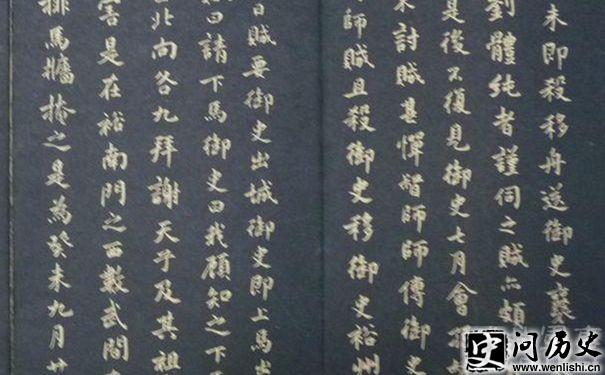 未即殺移舟送御史襄
劉體純者謹伺之賊亦頗
是後不復見御史七月會
討賊甚憚督師師傳御史
師賊且殺御史移御史裕州
日賊要御史出城御史即上馬
曰請下馬御史曰我顧知之下
北向各九拜謝天子及其祖
害是在裕南門之西數武間
排馬牆掩之是為癸未九月廿
史问历史
www.wenlishi.cn